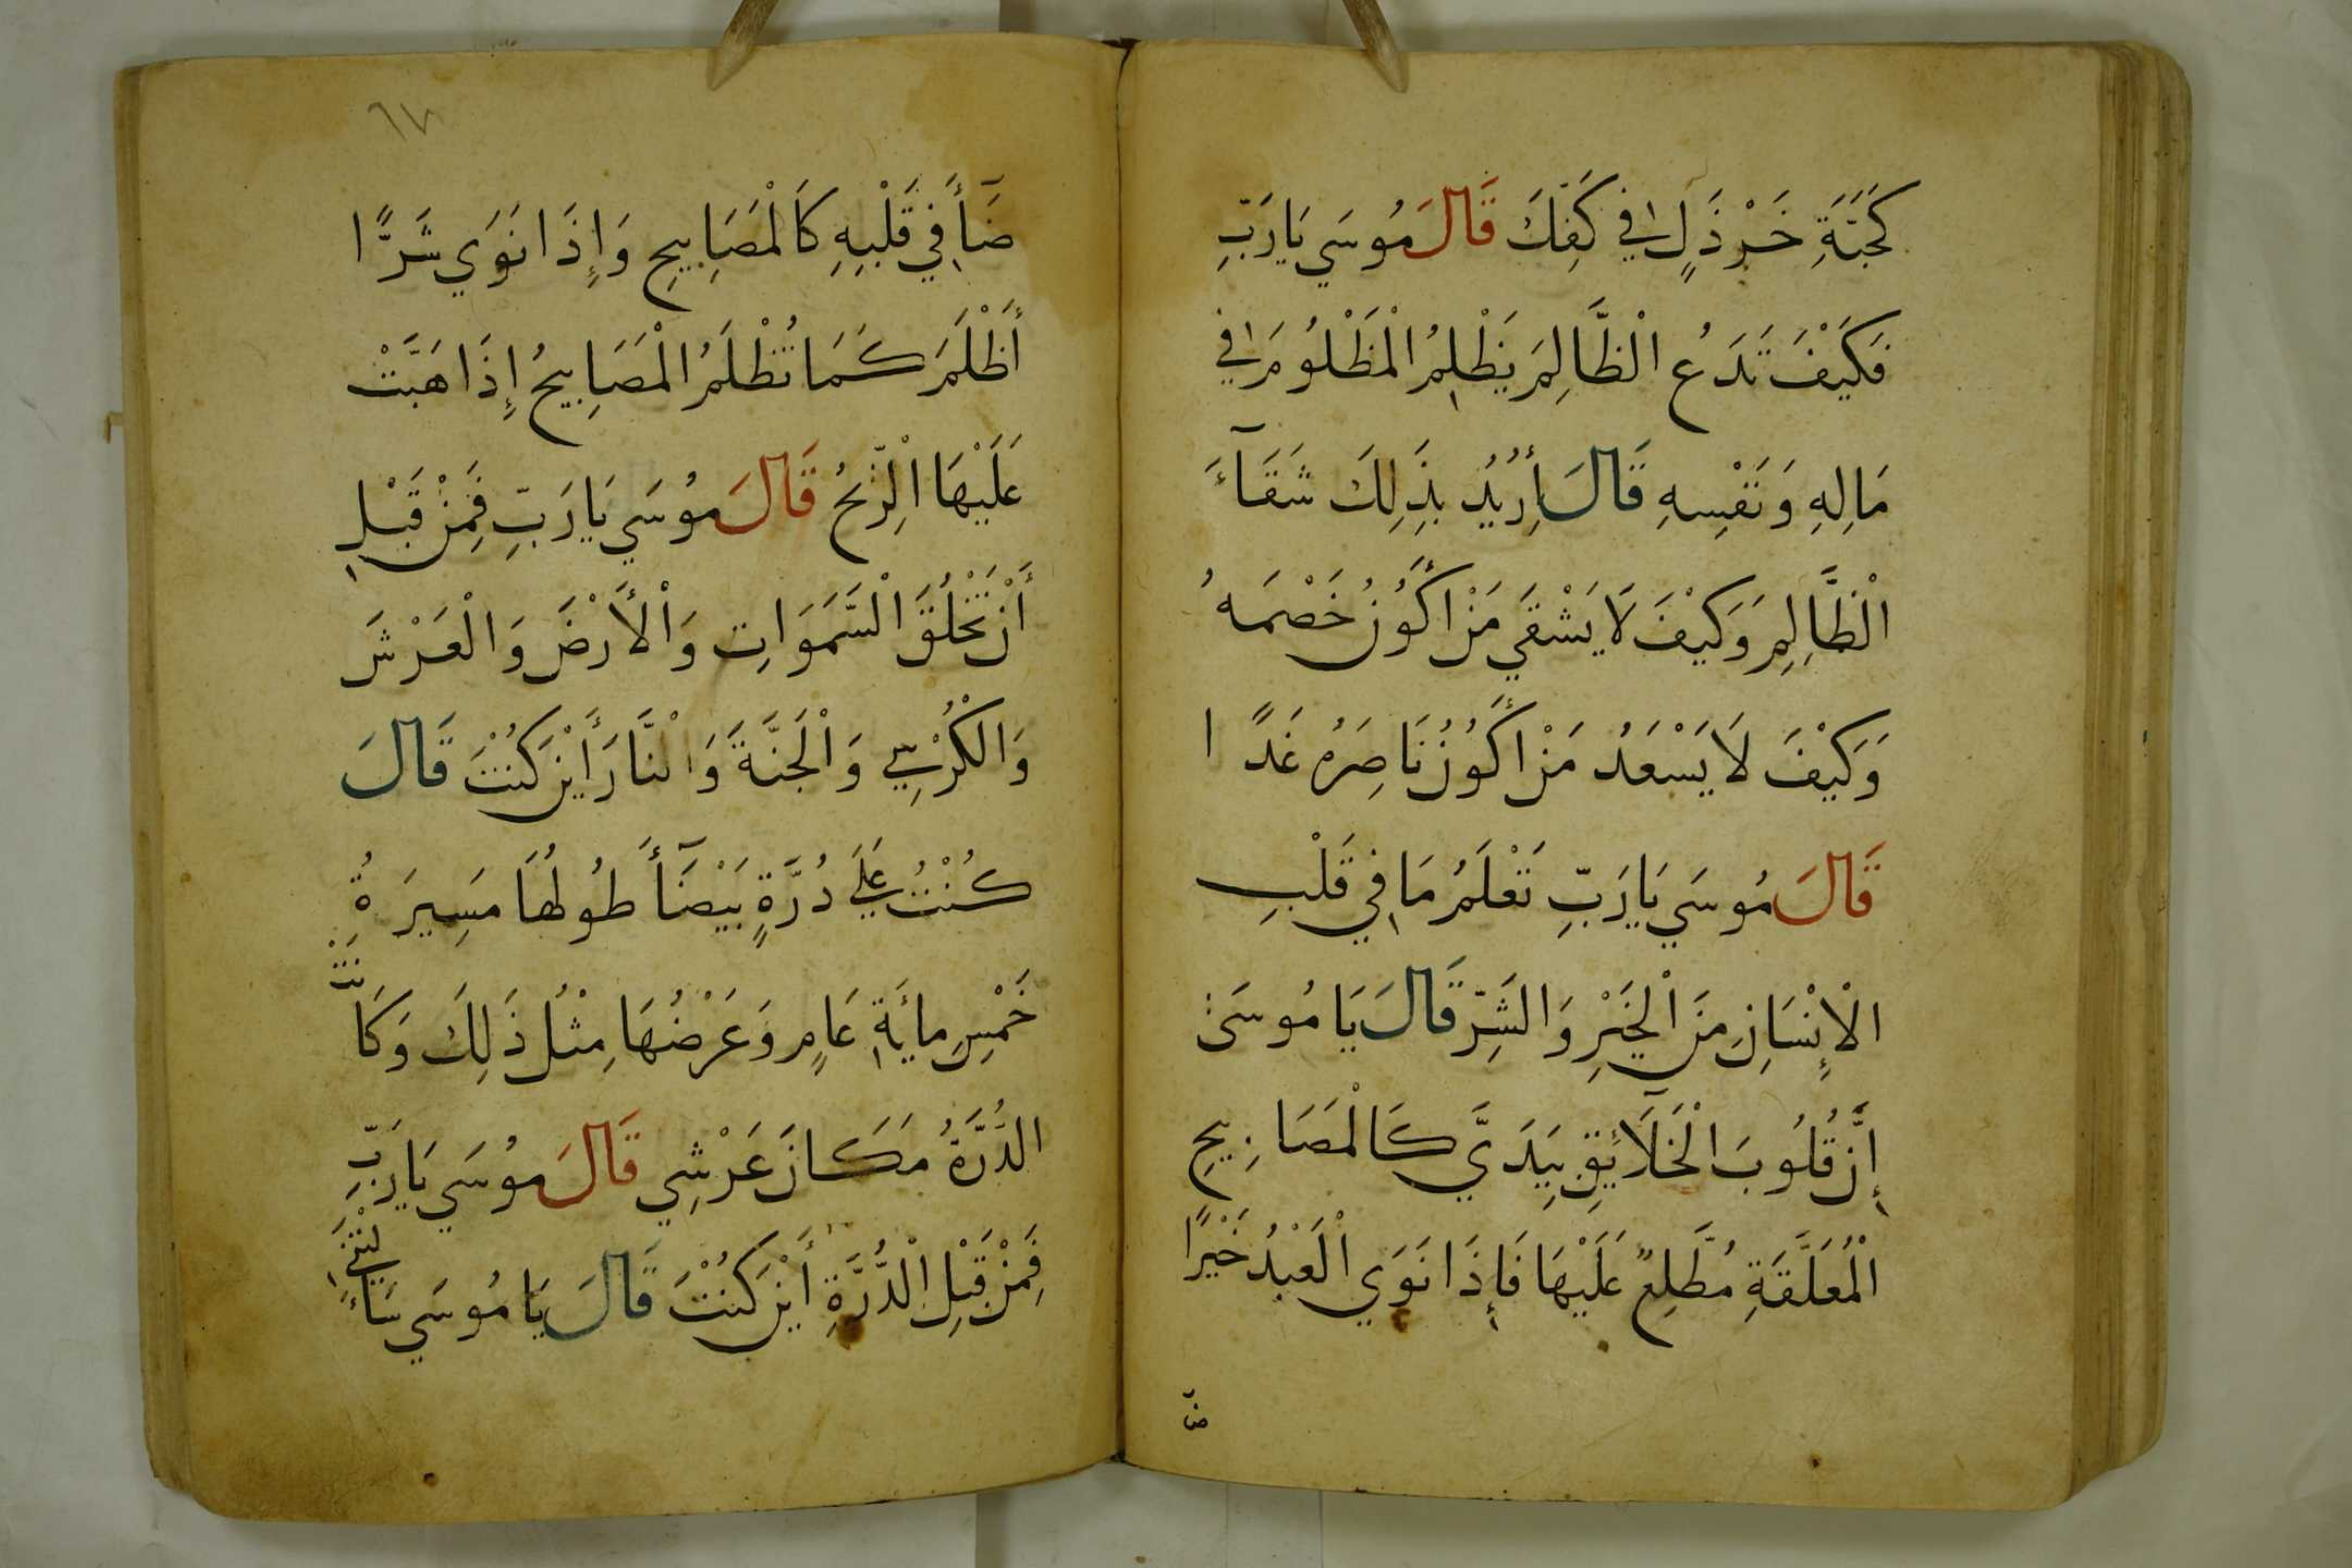 كَحَبَّةِ خَرْذَلٍ فِي كَفِكَ قَالَ مُوسَي يَارَبِّ
فَكَيْفَ تَدَعُ الْظَّالِمَ يَظْلِمُ الْمَظْلُومَ فِي
مَالِهِ وَنَفْسِهِ قَالَ أُرِيدُ بِذَلِكَ شَقَآءَ
الْظَّالِمِ وَكَيْفَ لَا يَشْقَي مَنْ أَكُونُ خَصْمَهُ
وَكَيْفَ لَا يَسْعَدُ مَنْ أَكُونُ نَاصِرَهُ غَدًا
قَالَ مُوسَي يَارَبِّ تَعْلَمُ مَا فِي قَلْبِ
الْإِنْسَانِ مِنَ الْخَيْرِ وَالشَّرِّ قَالَ يَا مُوسَى
إِنَّ قُلُوبَ الْخَلَآئِقِ بِيَدَيَّ كَالْمَصَابِيحِ
الْمُعَلَّقَةِ مُطَّلِعٌ عَلَيْهَا فَإِذَا نَوَي الْعَبْدُ خَيْرًا
ضآ
٦٧
ضَآأَ فِي قَلْبِهِ كَالْمَصَابِيحِ وَإِذَا نَوَي شَرًّا
أَظْلَمَ كَمَا تُظْلَمُ الْمَصَابِيحُ إِذَا هَبَّتْ
عَلَيْهَا الْرِّيحُ قَالَ مُوسَي يَارَبِّ فَمِنْ قَبْلِ
أَنْ تَخْلُقَ الْسَّمَوَاتِ وَالْأَرْضَ وَالْعَرْشَ
وَالْكُرْسِي وَالْجَنَّةَ وَالْنَّارَ أَيْنَ كُنْتَ قَالَ
كُنْتُ عَلَي دُرَّةٍ بَيْضَآأَ طُولُهَا مَسِيرَةُ
خَمْسِ مِائَةِ عَامٍ وَعَرْضُهَا مِثْلُ ذَلِكَ وَكَانَتْ
الدُّرَّةُ مَكَانَ عَرْشِي قَالَ مُوسَي يَارَبِّ
فَمِنْ قَبْلِ الْدُّرَّةِ أَيْنَ كُنْتَ قَالَ يَا مُوسَي سَأَلْتَنِي